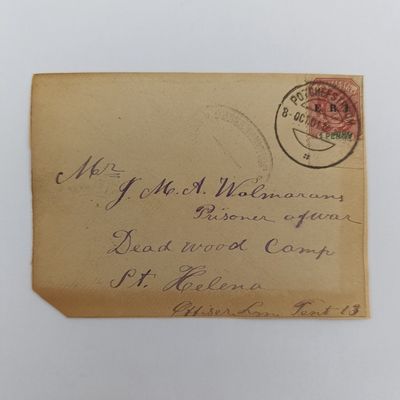 POTCHEFSTROOM
8-OCT.01
E.R.I.
1 PENNY
Mr
J. M. A. Wolmarans
Prisoner of war
Dead wood Camp
St. Helena
Tent 13